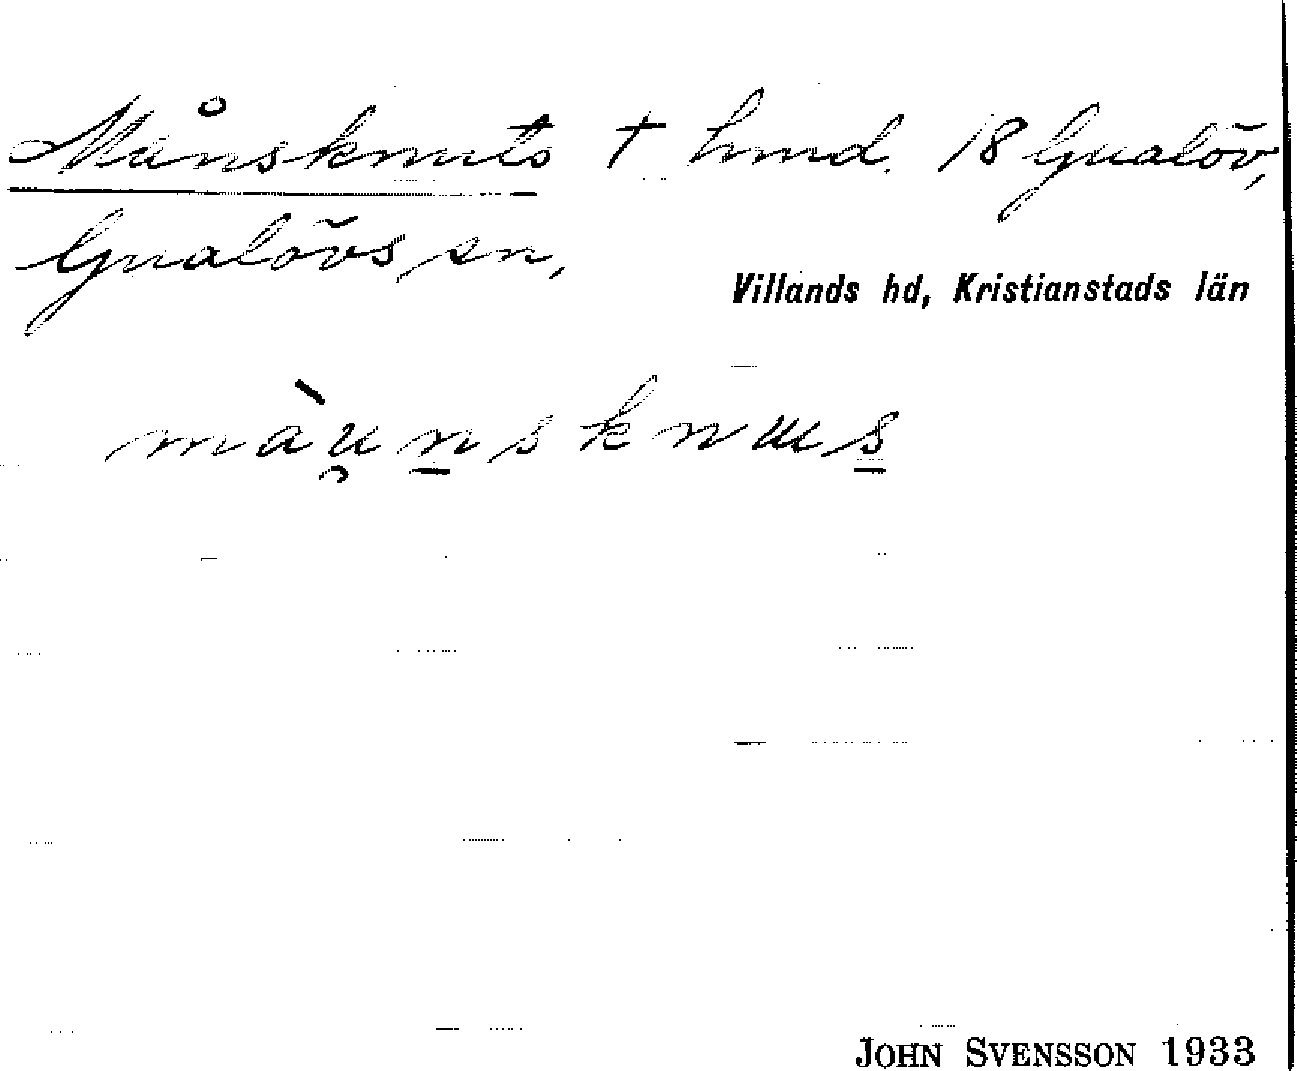 Månsknuts † hmd. 18 Gualöv,
Gualövs sn,
Villands hd, Kristianstads län
màu̯n̲sknɯs̲
JOHN SVENSSON 1933